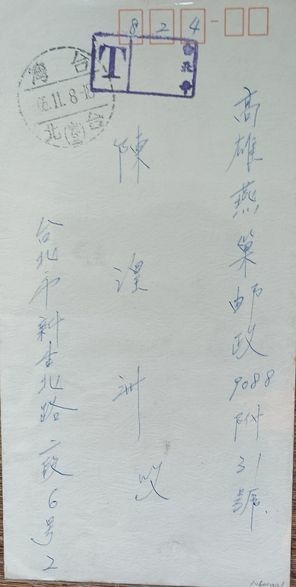 824
T
台北
台灣
86.11.8-18
台北
高雄燕巢郵政9088附31號
陳湟州
台北市新生北路二段6号2